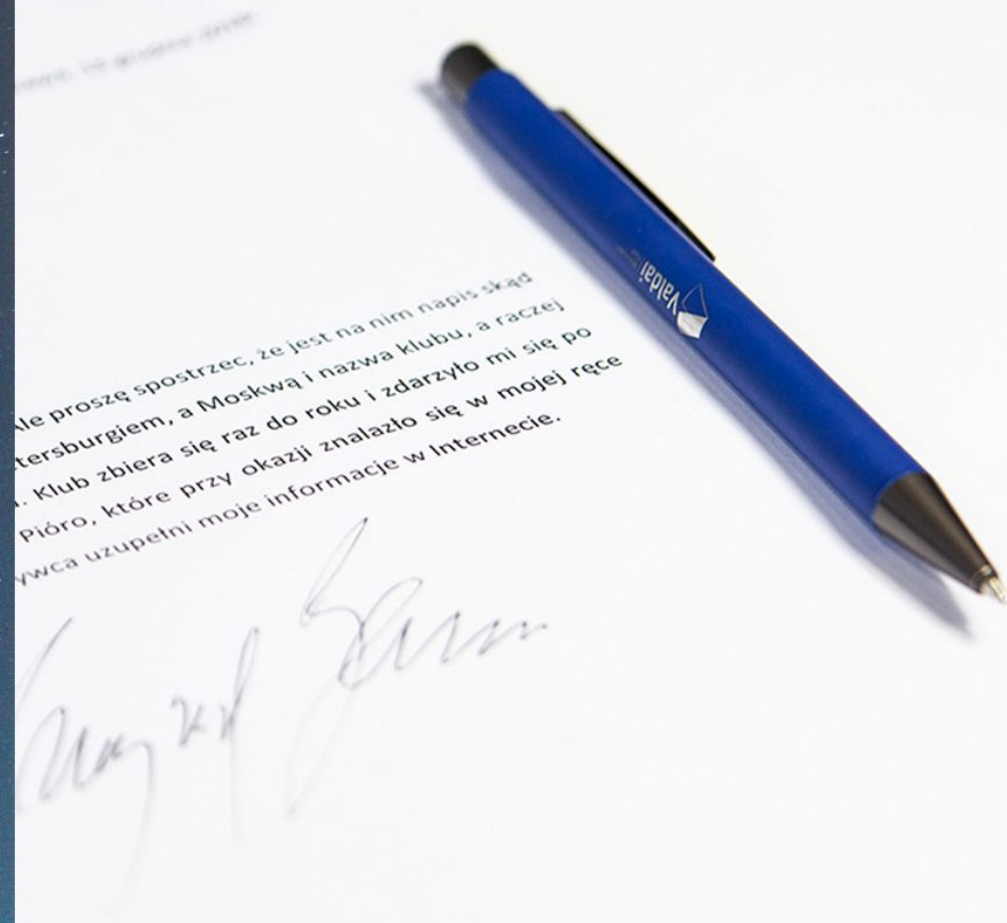 grudnia
Ale proszę spostrzec, że jest na nim napis skąd
tersburgiem, a Moskwą i nazwa klubu, a raczej
. Klub zbiera się raz do roku i zdarzyło mi się po
Pióro, które przy okazji znalazło się w mojej ręce
ywca uzupełni moje informacje w Internecie.
Valdai